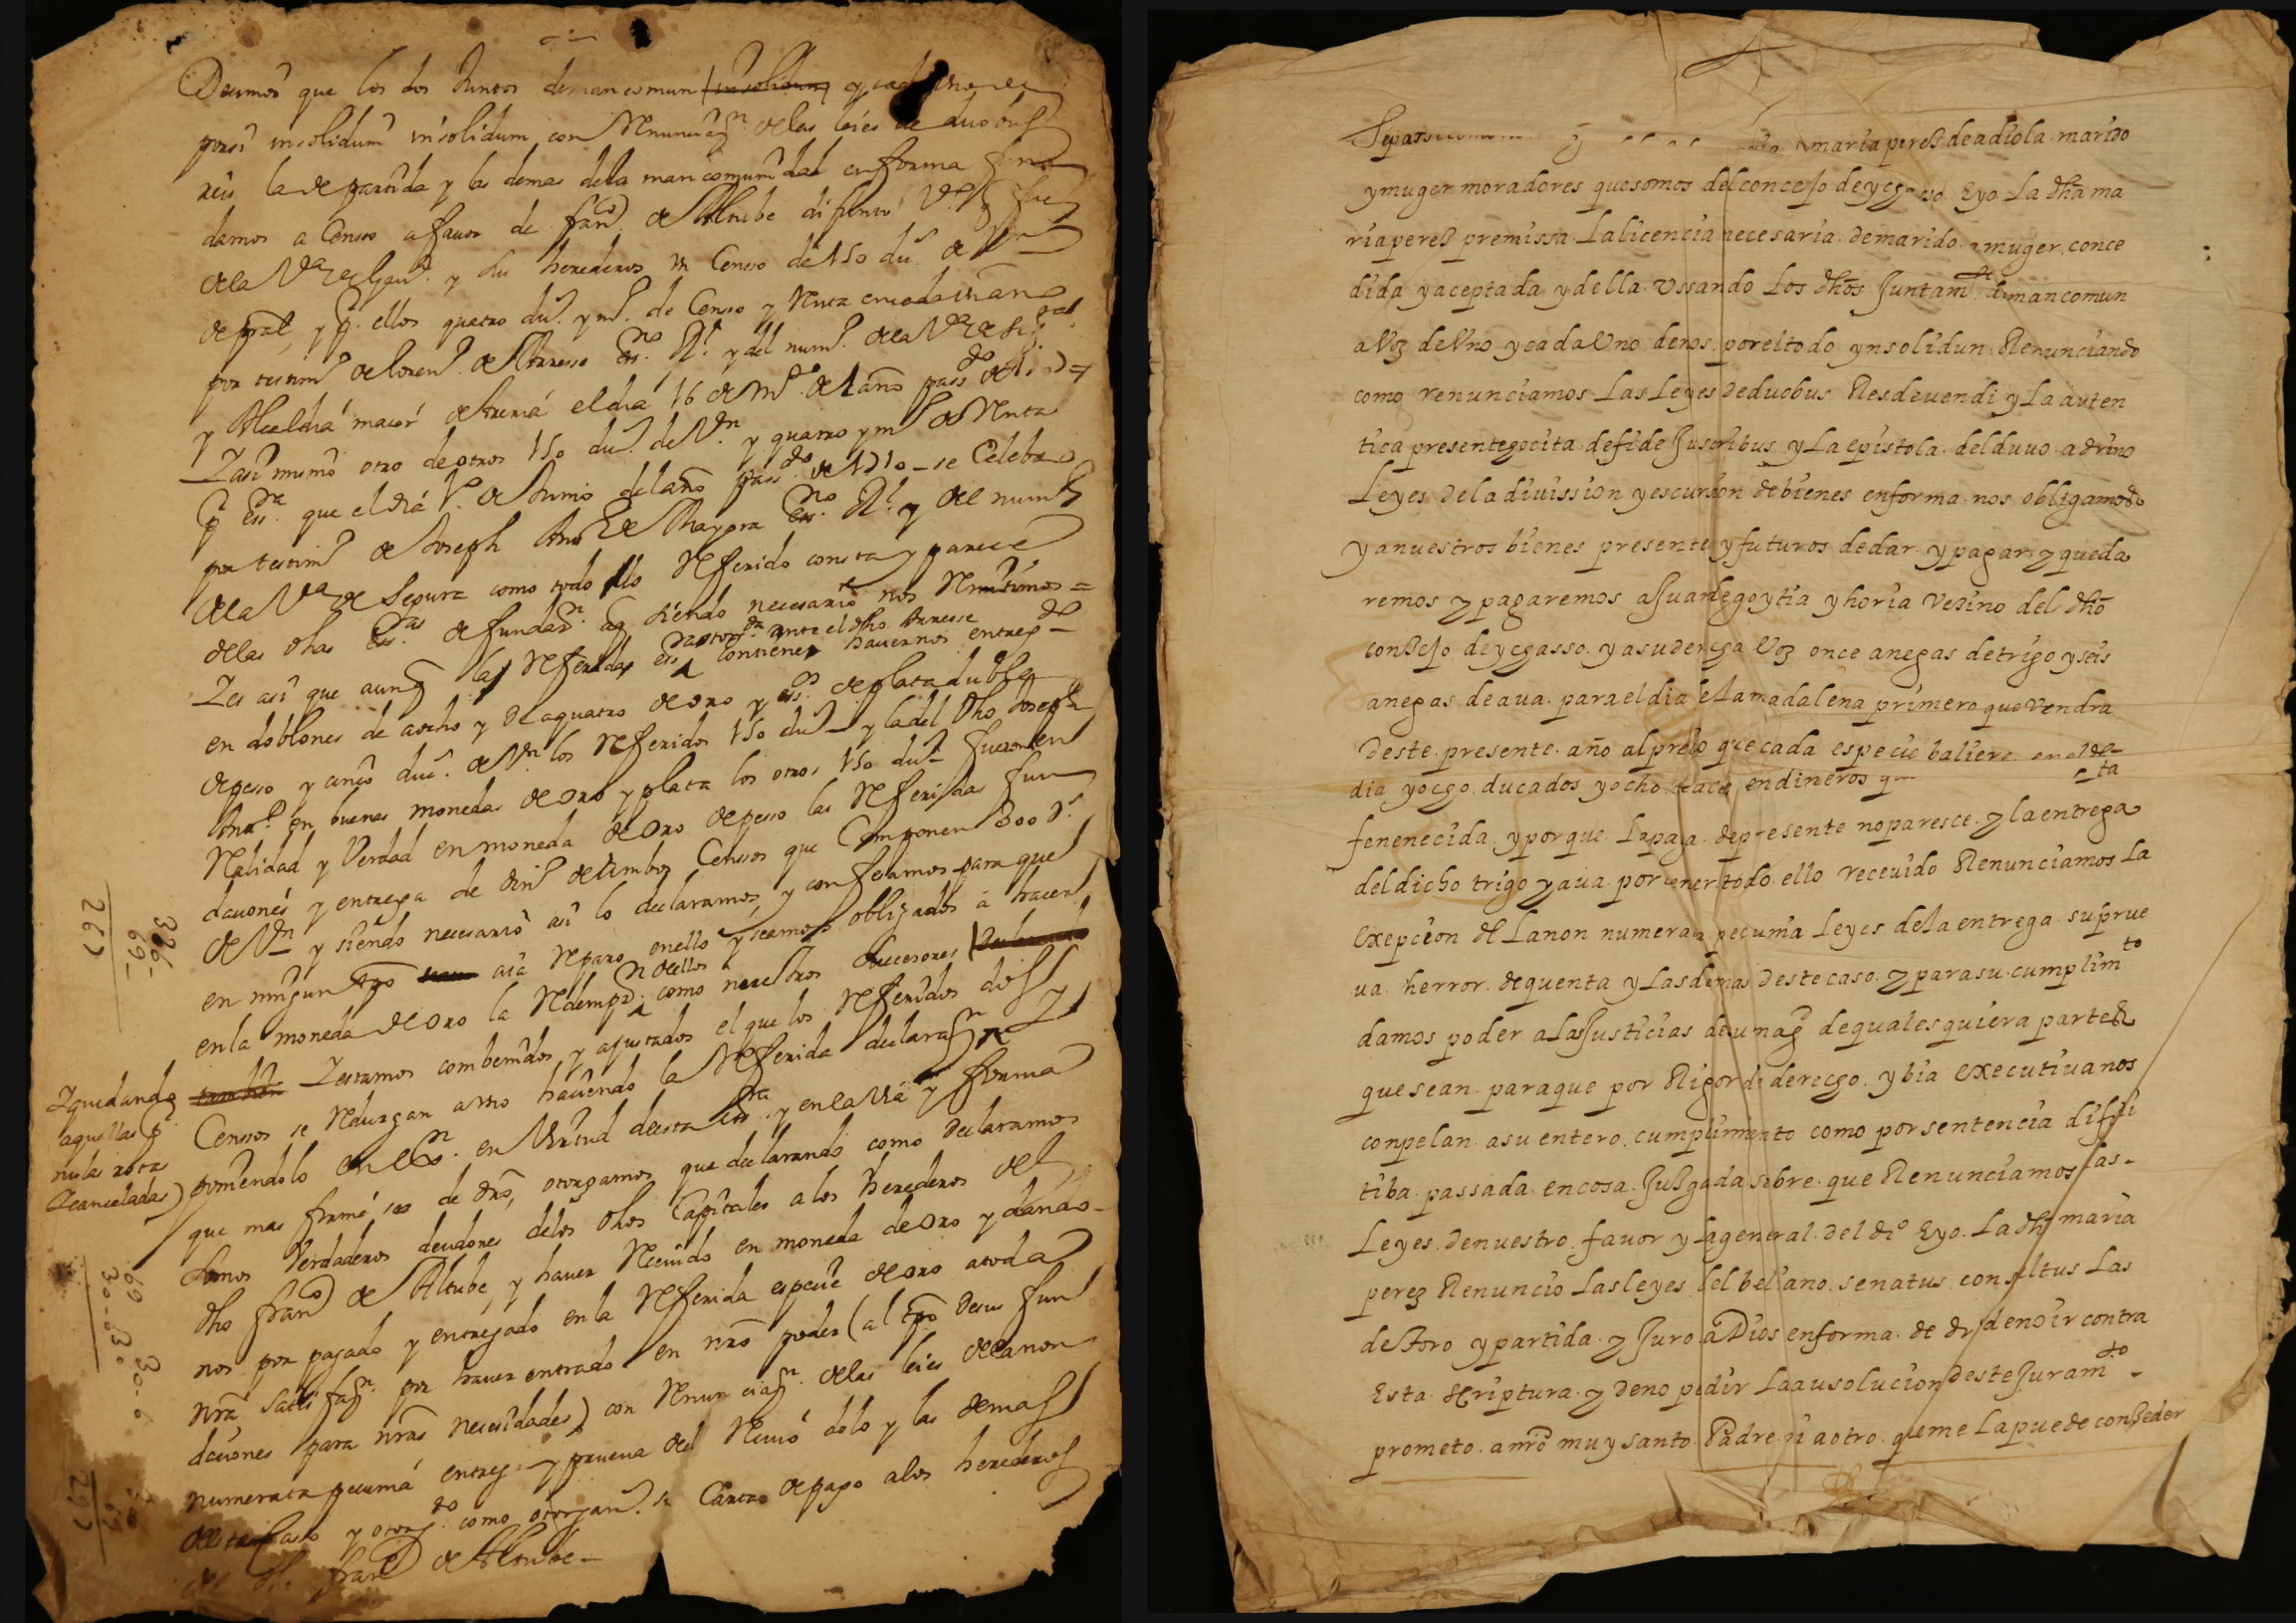 Decimos que los dos Juntos demancomun (insolidun) y cada uno
porsi insolidum insolidum con Renunciaⁿ de las leies de duobus
reis la de partida y las demas dela mancomunidad en forma
damos a Censo afauor de franᶜᵒ de Altube difunto Vº q fue
de la Vª y sus herederos Un Censo de 150 duˢ de
de prãl, y pʳ ellos quatro duˢ y mº de Censo y Renta encada un año
por testimº de Lorenº de essⁿᵒ Rˡ y del numº dela Vª de
y Alcaldia maior de Areria el dia 16 de del año passᵈᵒ de
Iasi mismo otro de otros 150 duˢ de Vⁿ y quatro y mº de Renta
pʳ essʳᵃ que el dia 1º de Junio del año passᵈᵒ de 1710 se Celebro
por testimº de Joseph Antº de essⁿᵒ Rˡ y del numº
dela Vª de Segura como todo ello Referido consta y parece
delas dhas essʳᵃˢ de fundaⁿ aq siendo necesario nos Remitimos =
otorgᵈᵃ ante el dho
Ies asi que aunq las Referidas essʳᵃˢ contienen hauernos entregᵈᵒ
en doblones de aocho y de aquatro de oro y essᵒˢ de plata duble
de pesso y cinco duˢ de Vⁿ los Referidos 150 duˢ y la del dho Joseph
Antº en buenas monedas de oro y plata los otros 150 duˢ fueron en
Realidad y Verdad en moneda de oro de pesso las Referidas fun
daciones y entrega de dinº de ambos Censos que Componen 300 dˢ
de Vⁿ y siendo necesario asi lo declaramos, y confesamos para que
en ningun tpo aia Reparo en ello y seamos obligados â hacer
en la moneda de oro la Redempⁿ dellos como nuestros Successores
Iestamos combenidos y ajustados el que los Referidos dos
Iquedando
aquellas pʳ
nulas rotas
Icanceladas)
Censos se Reduzgan auno hauiendo la Referida declaraⁿ
poniendolo en exⁿ en Virtud desta essʳᵃ y en la Via y forma
que mas firme sea de dro, otorgamos que declarando como declaramos
somos Verdaderos deudores delos dhos Capitales alos herederos del
dho franᶜᵒ de Altube, y hauer Reciuido en moneda de oro y dando
nos por pagado y entregado en la Referida especie de oro atoda
nra satisfaⁿ por hauer entrado en nro poder (al tpo desus fun
daciones para nras necesidades) con Renunciaⁿ delas leies dela non
numerata pecunia entregᵃ y prueua del Reciuo dolo y las demas
deste Casso y otorgᵈᵒ como otorgamˢ Carta de pago alos herederos
del dho franᶜᵒ de Altube
326
69
267
69
30-6
297
Sepan maria perez de adiola marido
y muger moradores que somos del concejo de ycgasso Eyo La dha ma
ria perez premissa La licencia necesaria de marido a muger conce
dida y aceptada y della Ussando Los dhos Juntamᵗᵉ demancomun
a Voz de Uno y cada Uno de nos por el todo ynsolidun Renunciando
como renunciamos Las Leyes deduobus Res devendi y La auten
tica presente gocita defide Jusoribus y La epistola del duuo adrino
Leyes de la diuission y escursion de bienes en forma nos obligamos
y a nuestros bienes presente y futuros de dar y pagar y que da
remos y pagaremos a Juan de goytia y horia Vezino del dho
conzejo de ycgasso y a su derecga Voz once anegas de trigo y seis
anegas de aua para el dia de La madalena primero que vendra
deste presente año al precio que cada especie baliere en el
dia y ocgo ducados y ocho en dineros
fenenecida y porque La paga de presente no paresce y la entrega
del dicho trigo y aua por tener todo ello receuido Renunciamos La
exepcion de La non numerata pecunia Leyes de la entrega su prue
ua herror de quenta y Las demas deste caso y para su cumplimᵗᵒ
damos poder a Las Justicias de su magᵈ de quales quiera partes
que sean para que por Rigor de derecgo y bia executiua nos
conpelan a su entero cumplimiento como por sentencia difini
tiba passada en cosa Juzgada sobre que Renunciamos Las
Leyes de nuestro fauor y La general del dº Eyo La dha maria
perez Renuncio Las leyes del beliano senatus consultus Las
de toro y partida y Juro a Dios en forma de de no ir contra
Esta scriptura y de no pedir La ausolucion deste Juramᵗᵒ
prometo a nro muy santo Padre ni a otro que me La puede conzeder